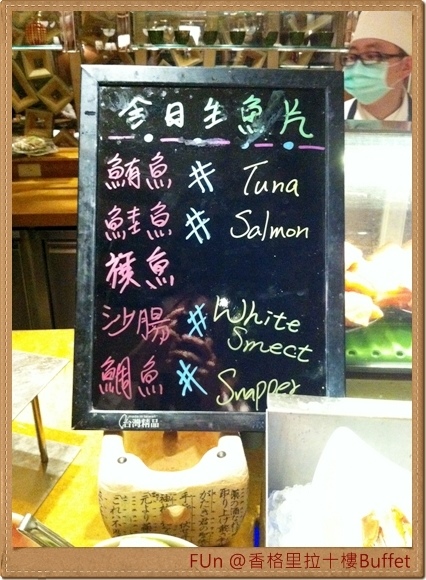 今日生魚片
鮪魚 # Tuna
鮭魚 # Salmon
旗魚
沙腸 # White
Smect
鯛魚 # Snapper
台灣精品
FUn @香格里拉十樓Buffet